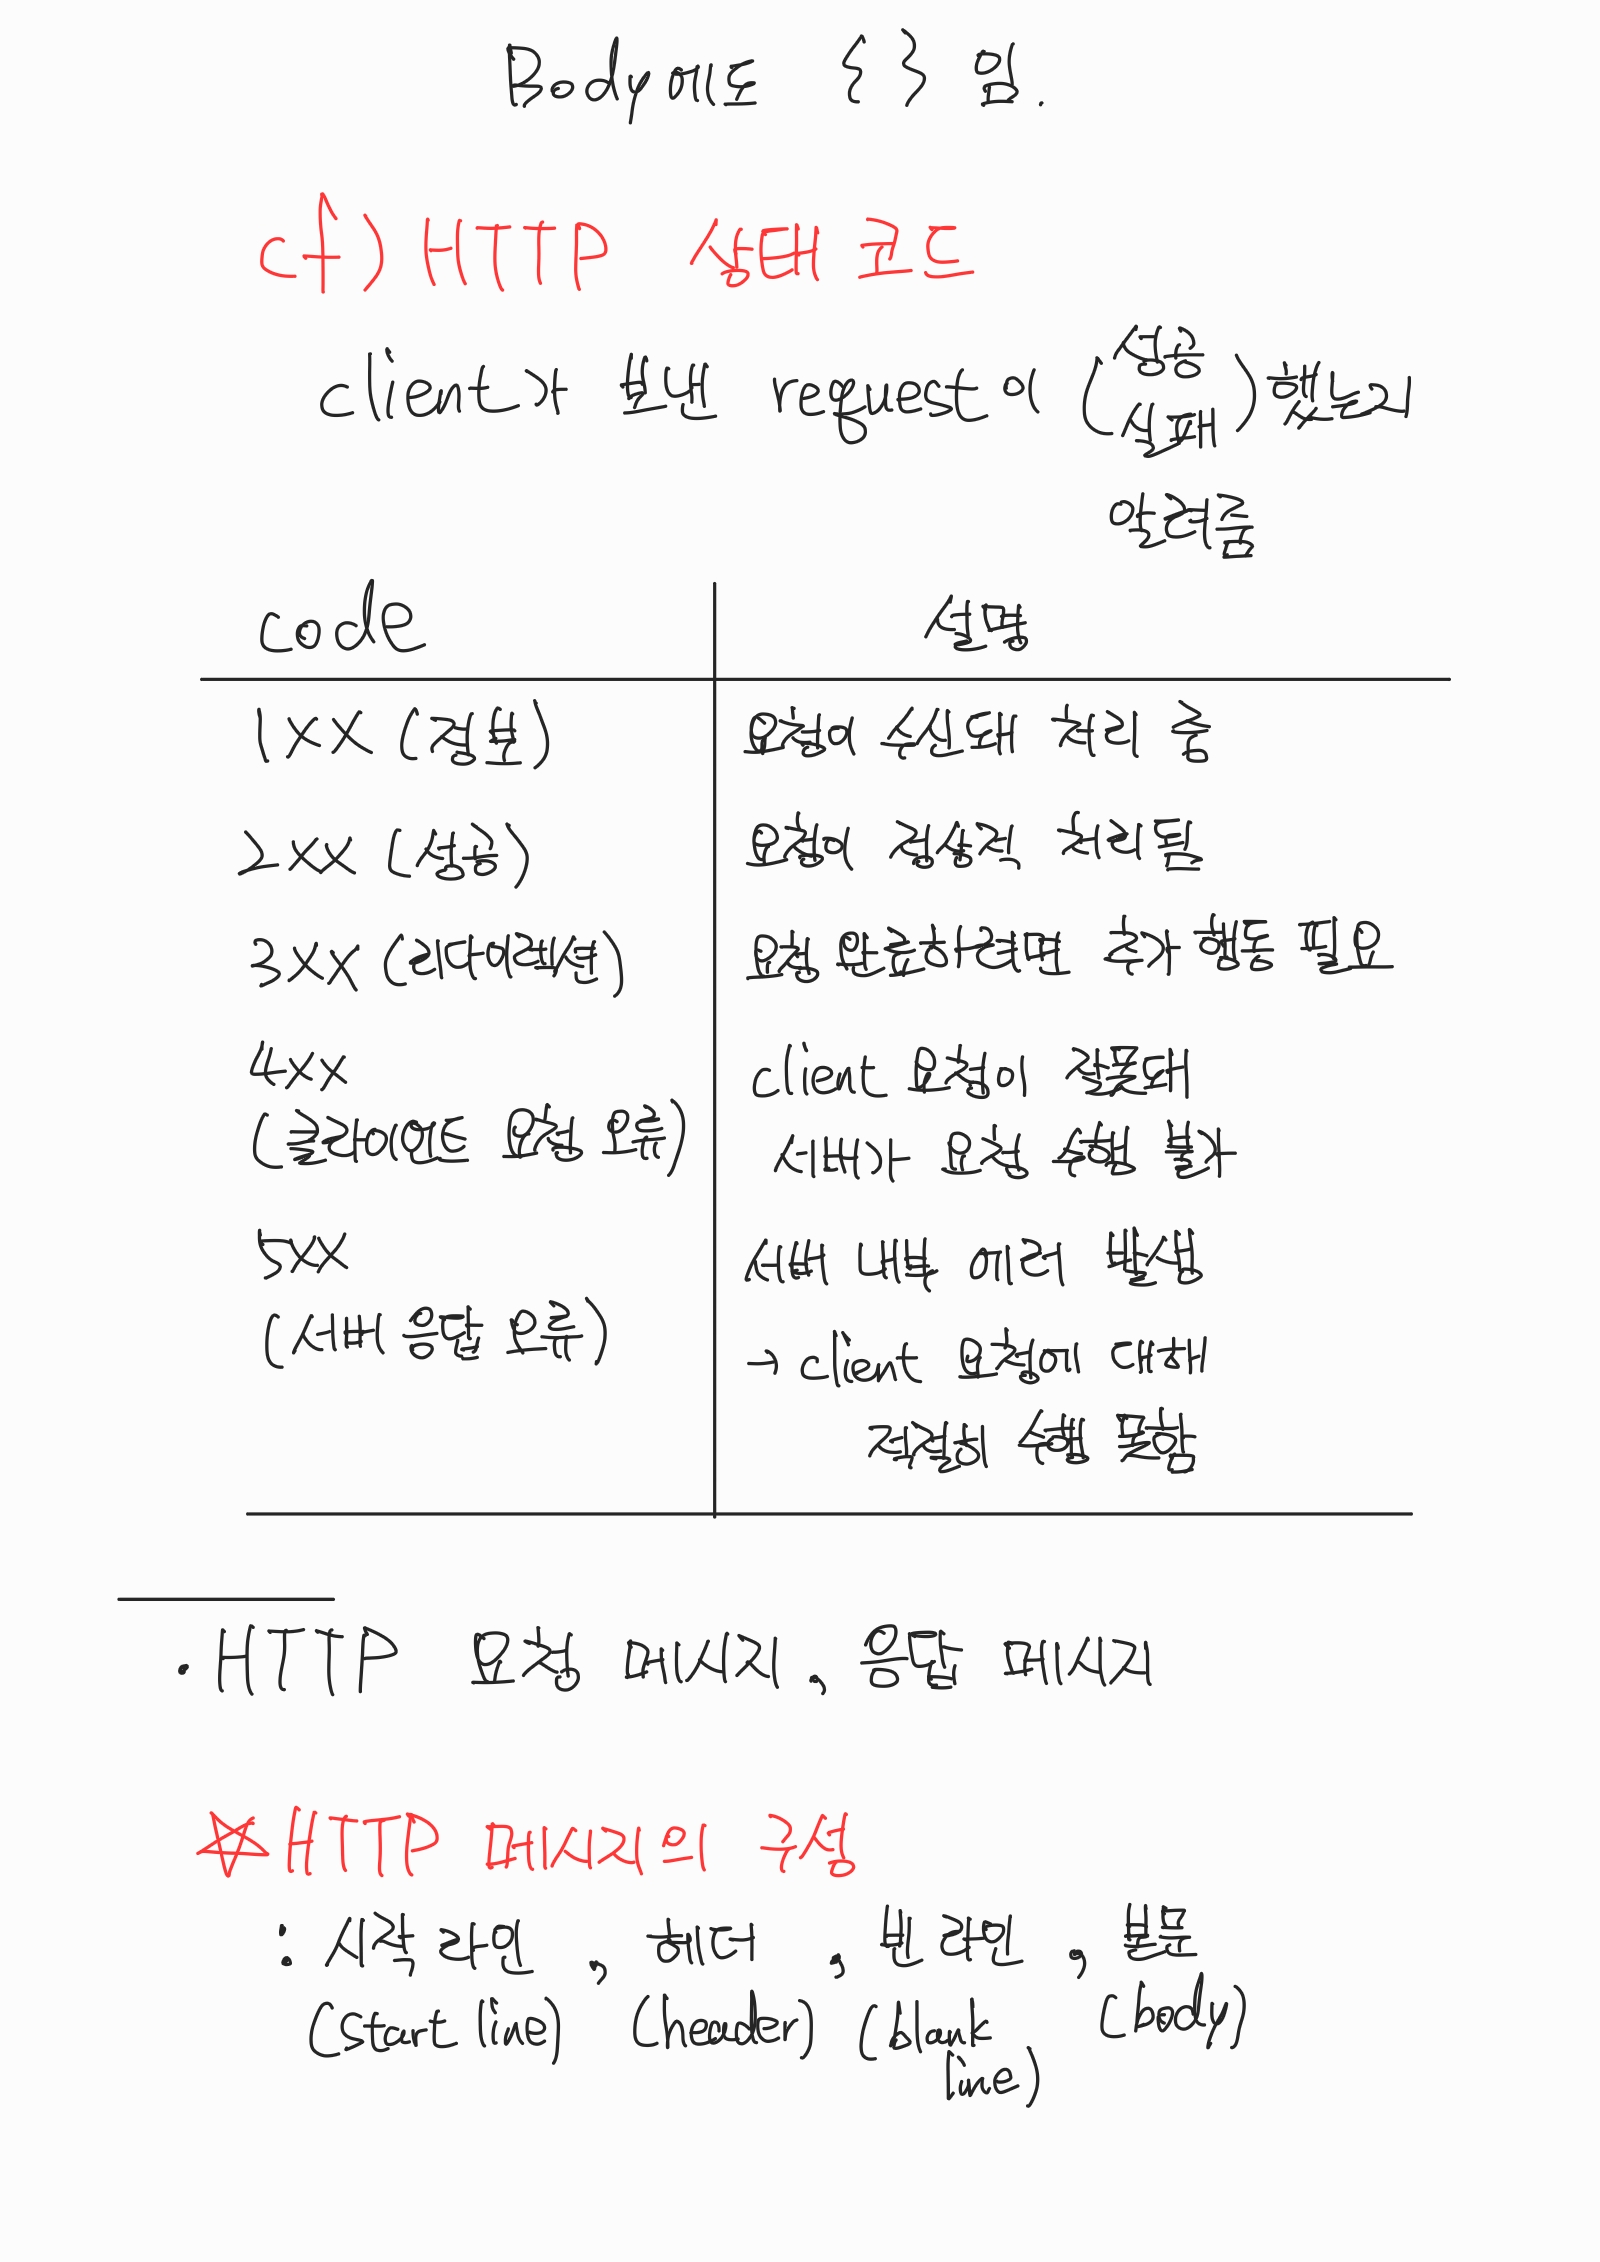 Body에도 { } 임.
cf) HTTP 상태 코드
client가 보낸 request이 (성공 실패) 했는지
알려줌
code 설명
1XX (정보) 요청이 수신돼 처리 중
2XX (성공) 요청이 정상적 처리됨
3XX (리다이렉션) 요청 완료하려면 추가 행동 필요
4XX client 요청이 잘못돼
(클라이언트 요청 오류) 서버가 요청 수행 불가
5XX 서버 내부 에러 발생
(서버 응답 오류) → client 요청에 대해
적절히 수행 못함
• HTTP 요청 메시지, 응답 메시지
☆ HTTP 메시지의 구성
: 시작 라인, 헤더, 빈 라인, 본문
(start line) (header) (blank line) (body)